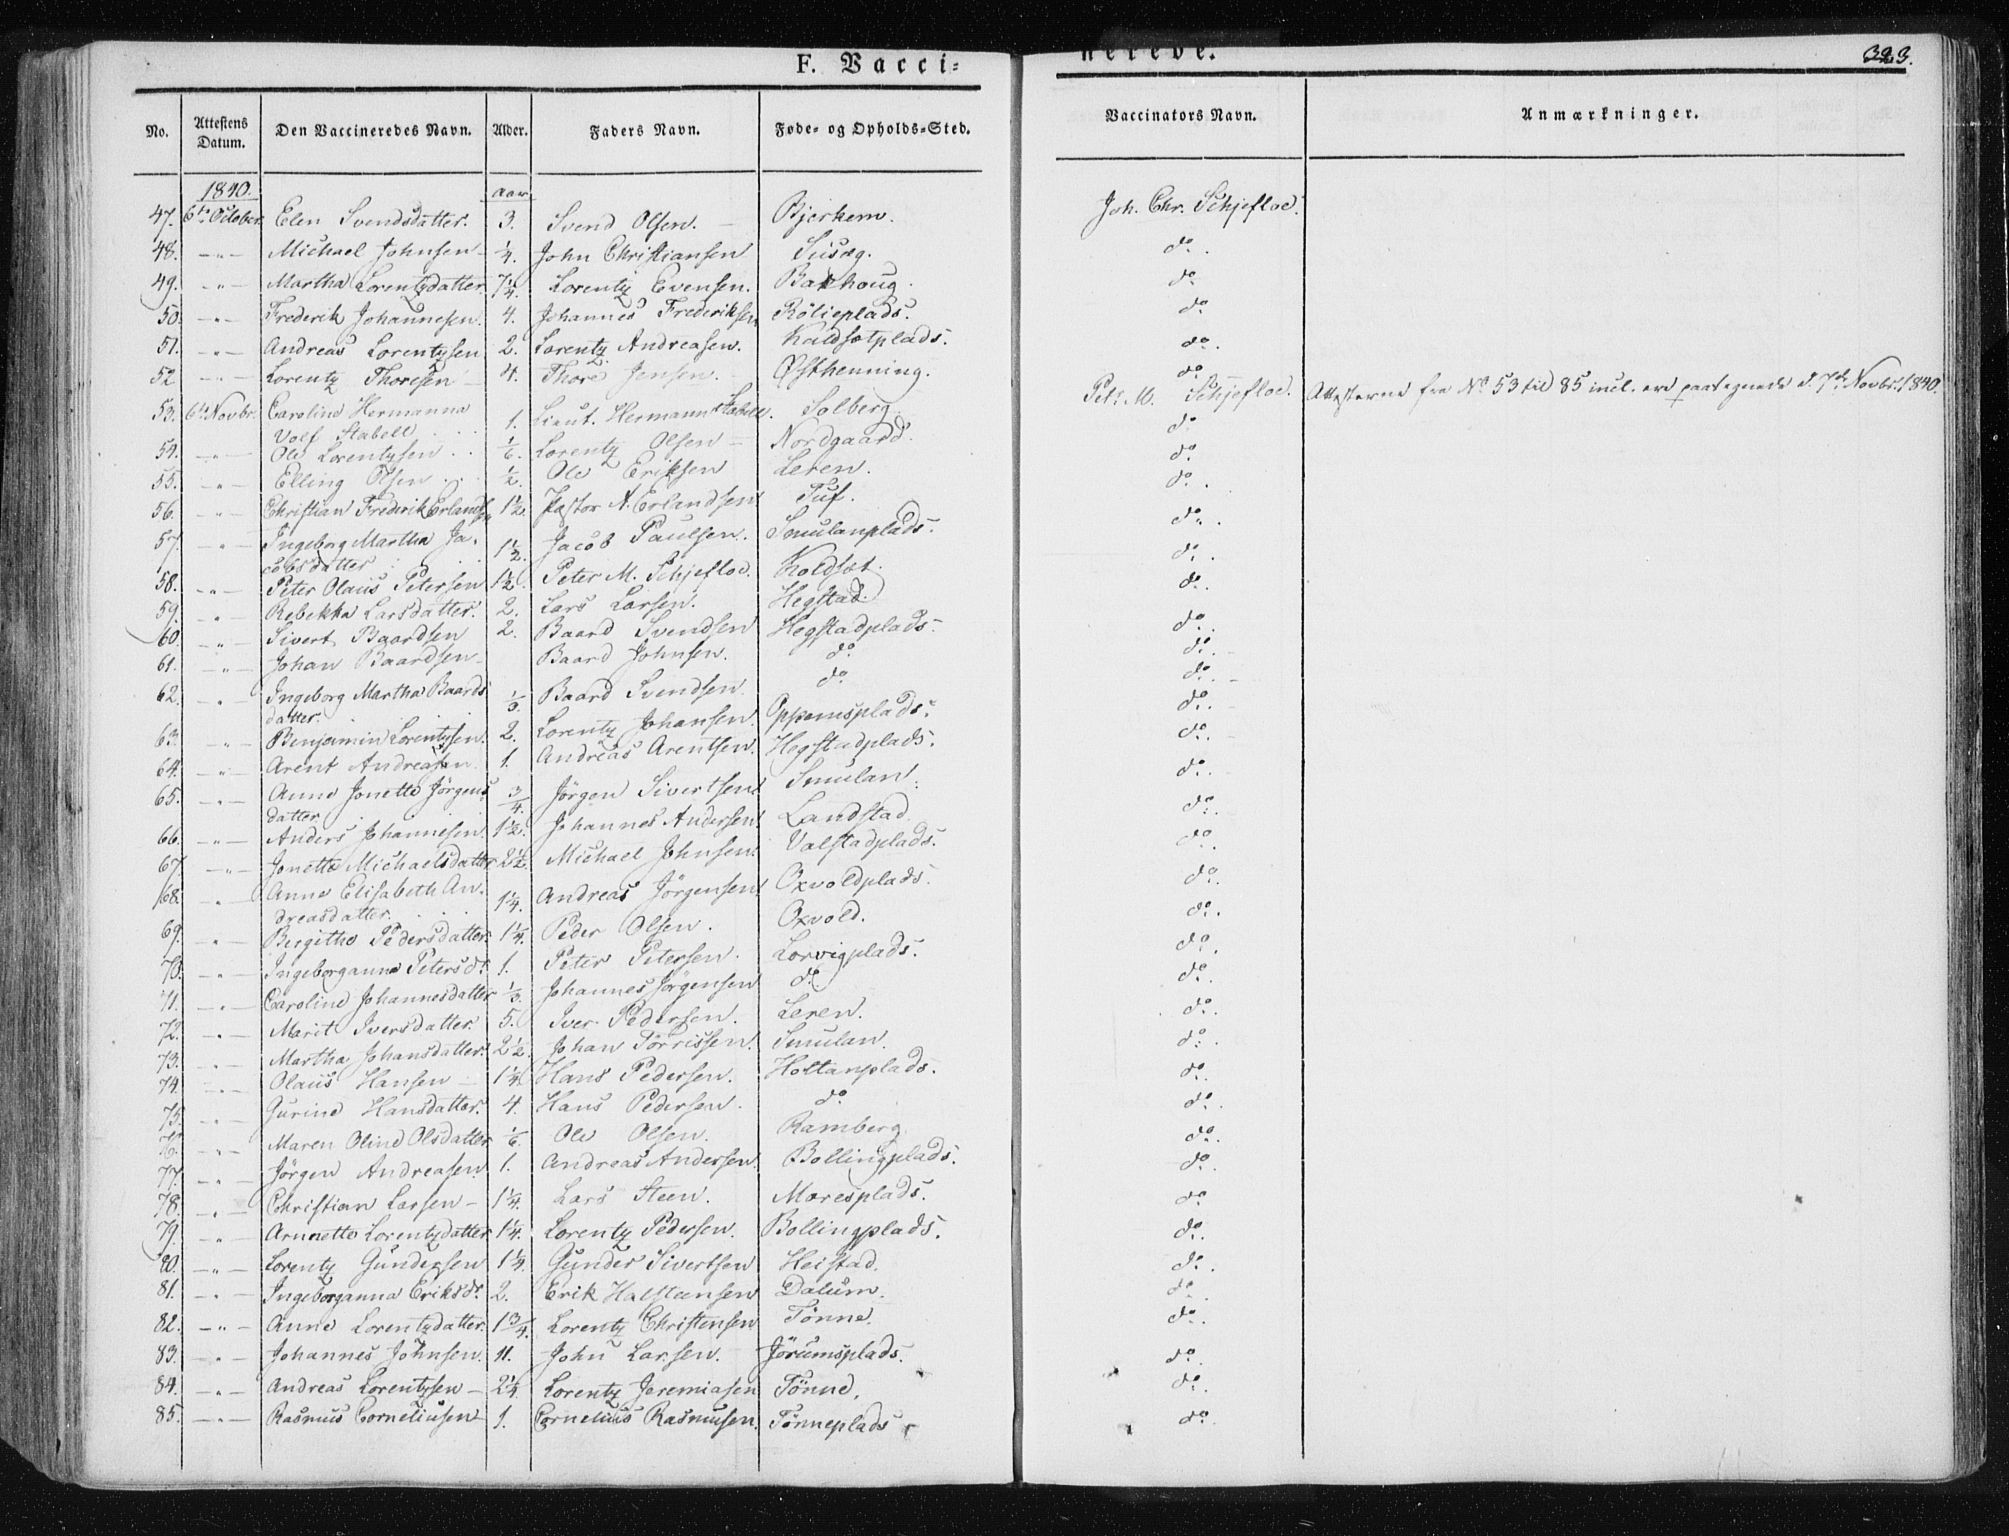 F. Vacci=
nerede.
323.
No. Attestens Datum. Den Vaccineredes Navn. Alder. Faders Navn. Føde- og Opholds-Sted. Vaccinators Navn. Anmærkninger.
1840. Aar
47. 6te October. Elen Svendsdatter. 3. Svend Olsen. Bjerkem. Joh. Chr. Schjefloe.
48. —"— Michael Johnsen 1/4 John Christiansen Susæg. do.
49. —"— Martha Lorentzdatter 7 1/4. Lorentz Evensen. Bakhoug. do
50. —"— Frederik Johannesen. 4. Johannes Frederiksen Rölieplads. do
51. —"— Andreas Lorentzsen 2. Lorentz Andreasen. Kaldsetplads. do.
52 —"— Lorentz Thoresen 4. Thore Jensen. Østhenning. do
53. 6te Novbr. Caroline Hermanna 1. Lieut. Hermann Stabell. Solberg. Petr. M. Schjefloe. Attesterne fra No 53 til 85 incl. ere paategnede d. 7de Novbr. 1840.
Volf Stabell . . . do
54. —"— Ole Lorentzsen . . 1/6. Lorentz Olsen Nordgaard. do.
55. —"— Elling Olsen . . . 1/2. Ole Eriksen Leren. do.
56. —"— Christian Frederik Erlandsen 1 1/2. Pastor A. Erlandsen Tuf. do.
57 —"— Ingeborg Martha Ja- 1 1/2. Jacob Paulsen. Smulanplads. do.
cobsdatter
58. —"— Peter Olaus Petersen 1 1/2. Peter M. Schjefloe. Koldsæt. do.
59. —"— Rebekka Larsdatter. 2. Lars Larsen. Hegstad. do.
60. —"— Sivert Baardsen 2. Baard Svendsen Hegstadplads. do.
61. —"— Johan Baardsen Baard Johnsen. do do.
62. —"— Ingeborg Martha Baards 1/3. Baard Svendsen. do do.
datter.
63. —"— Benjamin Lorentzsen. 2. Lorentz Johansen. Oppemsplads. do.
64. —"— Arent Andreasen. 1. Andreas Arentsen. Hegstadplads. do.
65. —"— Anne Jonette Jörgens 3/4. Jörgen Sivertsen Smulan. do.
datter
66. —"— Anders Johannesen. 1 1/2. Johannes Andersen Landstad. do.
67 —"— Jonette Michaelsdatter 2 1/2. Michael Johnsen. Valstadplads. do.
68. —"— Anne Elisabeth An- 1 1/4. Andreas Jörgensen Oxvoldplads. do.
dreasdatter. . . .
69. —"— Bergithe Pedersdatter. 1 1/4. Peder Olsen. Oxvold. do.
70. —"— Ingeborganna Petersdr. 1. Peter Petersen. Lorvigplads. do.
71. —"— Caroline Johannesdatter 1/3. Johannes Jörgensen do do.
72. —"— Marit Iversdatter. 5. Iver Pedersen. Leren. do.
73. —"— Martha Johansdatter. 2 1/2. Johan Törrissen. Smulan. do.
74. —"— Olaus Hansen 1 1/4 Hans Pedersen. Holtanplads. do.
75. —"— Gurine Hansdatter. 4. Hans Pedersen. do do.
76. —"— Maren Oline Olsdatter 1/6. Ole Olsen. Ramberg. do.
77. —"— Jörgen Andreasen. 1. Andreas Andersen. Bollingplads. do.
78. —"— Christian Larsen 1 1/4. Lars Steen. Moresplads. do
79. —"— Arnnette Lorentzdatter 1 1/4. Lorentz Pedersen. Bollingplads. do.
80. —"— Lorentz Gundersen 1 1/4. Gunder Sivertsen Heistad. do.
81. —"— Ingeborganna Eriksdr. 2. Erik Halstensen Dalum. do.
82. —"— Anne Lorentzdatter 1 3/4. Lorentz Christensen Tönne. do.
83. —"— Johannes Johnsen. 11. John Larsen. Jörumsplads. do.
84. —"— Andreas Lorentzsen 2 1/4. Lorentz Jeremiasen Tönne. do.
85. —"— Rasmus Corneliusen 1. Cornelius Rasmusen. Tönneplads do.